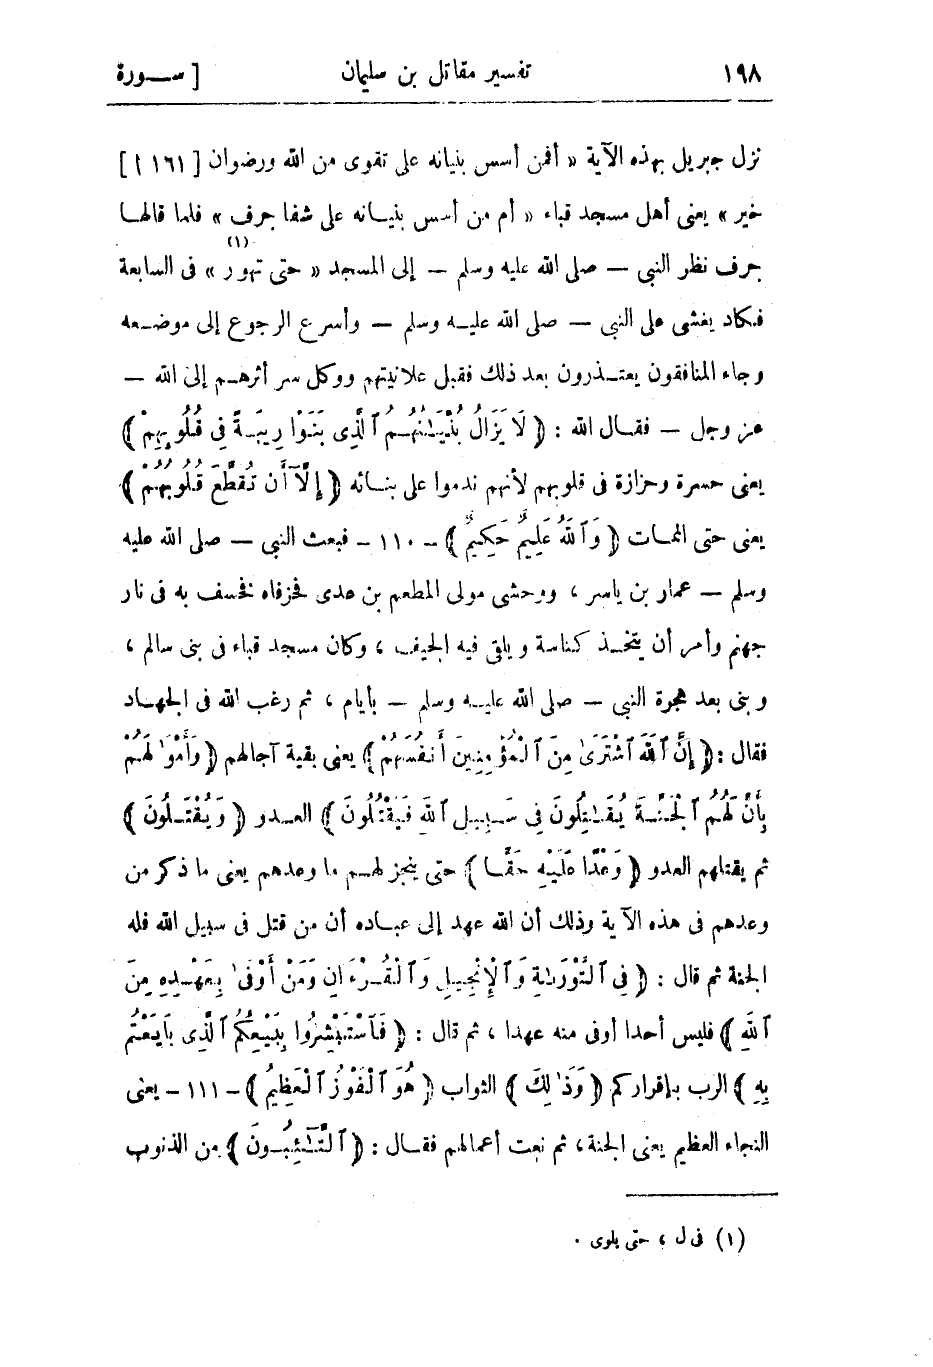 ١٩٨ تفسير مقاتل بن سليمان [ ســـورة
نزل جبريل بهذه الآية « أفمن أسس بنيانه على تقوى من الله ورضوان [ ١٦١ أ ]
خير » يعنى أهل مسجد قباء « أم من أسس بنيـانه على شفا جرف » فلما قالهـا
جرف نظر النبى — صلى الله عليه وسلم — إلى المسجد « حتى تهور (١) » فى السابعة
فـكاد يغشى على النبى — صلى الله عليـه وسلم — وأسرع الرجوع إلى موضـعه
وجاء المنافقون يعتـذرون بعد ذلك فقبل علانيتهم ووكل سر أثرهـم إلى الله —
عز وجل — فقـال الله : ﴿ لَا يَزَالُ بُنْيَـٰنُهُـمُ ٱلَّذِى بَنَوْا رِيبَـةً فِى قُلُوبِهِمْ ﴾
يعنى حسرة وحزازة فى قلوبهم لأنهم ندموا على بنـائه ﴿ إِلَّآ أَن تُقَطَّعَ قُلُوبُهُمْ ﴾
يعنى حتى الممـات ﴿ وَٱللَّهُ عَلِيمٌ حَكِيمٌ ﴾ ـ ١١٠ ـ فبعث النبى — صلى الله عليه
وسلم — عمار بن ياسر ، ووحشى مولى المطعم بن عدى فحزفاه فخسف به فى نار
جهنم وأمر أن يتخـذ كناسة ويلقى فيه الجيف ، وكان مسجد قباء فى بنى سالم ،
وبنى بعد هجرة النبى — صلى الله عليـه وسلم — بأيام ، ثم رغب الله فى الجهـاد
فقال : ﴿ إِنَّ ٱللَّهَ ٱشْتَرَىٰ مِنَ ٱلْمُؤْمِنِينَ أَنفُسَهُمْ ﴾ يعنى بقية آجالهم ﴿ وَأَمْوَٰلَهُمْ
بِأَنَّ لَهُمُ ٱلْجَنَّـةَ يُقَـٰتِلُونَ فِى سَـبِيلِ ٱللَّهِ فَيَقْتُلُونَ ﴾ العـدو ﴿ وَيُقْتَـلُونَ ﴾
ثم يقتلهم العدو ﴿ وَعْدًا عَلَيْهِ حَقًّـا ﴾ حتى ينجز لهـم ما وعدهم يعنى ما ذكر من
وعدهم فى هذه الآية وذلك أن الله عهد إلى عبـاده أن من قتل فى سبيل الله فله
الجنة ثم قال : ﴿ فِى ٱلتَّوْرَىٰةِ وَٱلْإِنجِيلِ وَٱلْقُـرْءَانِ وَمَنْ أَوْفَىٰ بِعَهْـدِهِ مِنَ
ٱللَّهِ ﴾ فليس أحدا أوفى منه عهدا ، ثم قال : ﴿ فَٱسْتَبْشِرُوا بِبَيْعِكُمُ ٱلَّذِى بَايَعْتُم
بِهِ ﴾ الرب بإقراركم ﴿ وَذَٰلِكَ ﴾ الثواب ﴿ هُوَ ٱلْفَوْزُ ٱلْعَظِيمُ ﴾ ـ ١١١ ـ يعنى
النجاء العظيم يعنى الجنة ، ثم نعت أعمالهم فقـال : ﴿ ٱلتَّـٰٓئِبُـونَ ﴾ من الذنوب
(١) فى ل ، حتى يلوى .